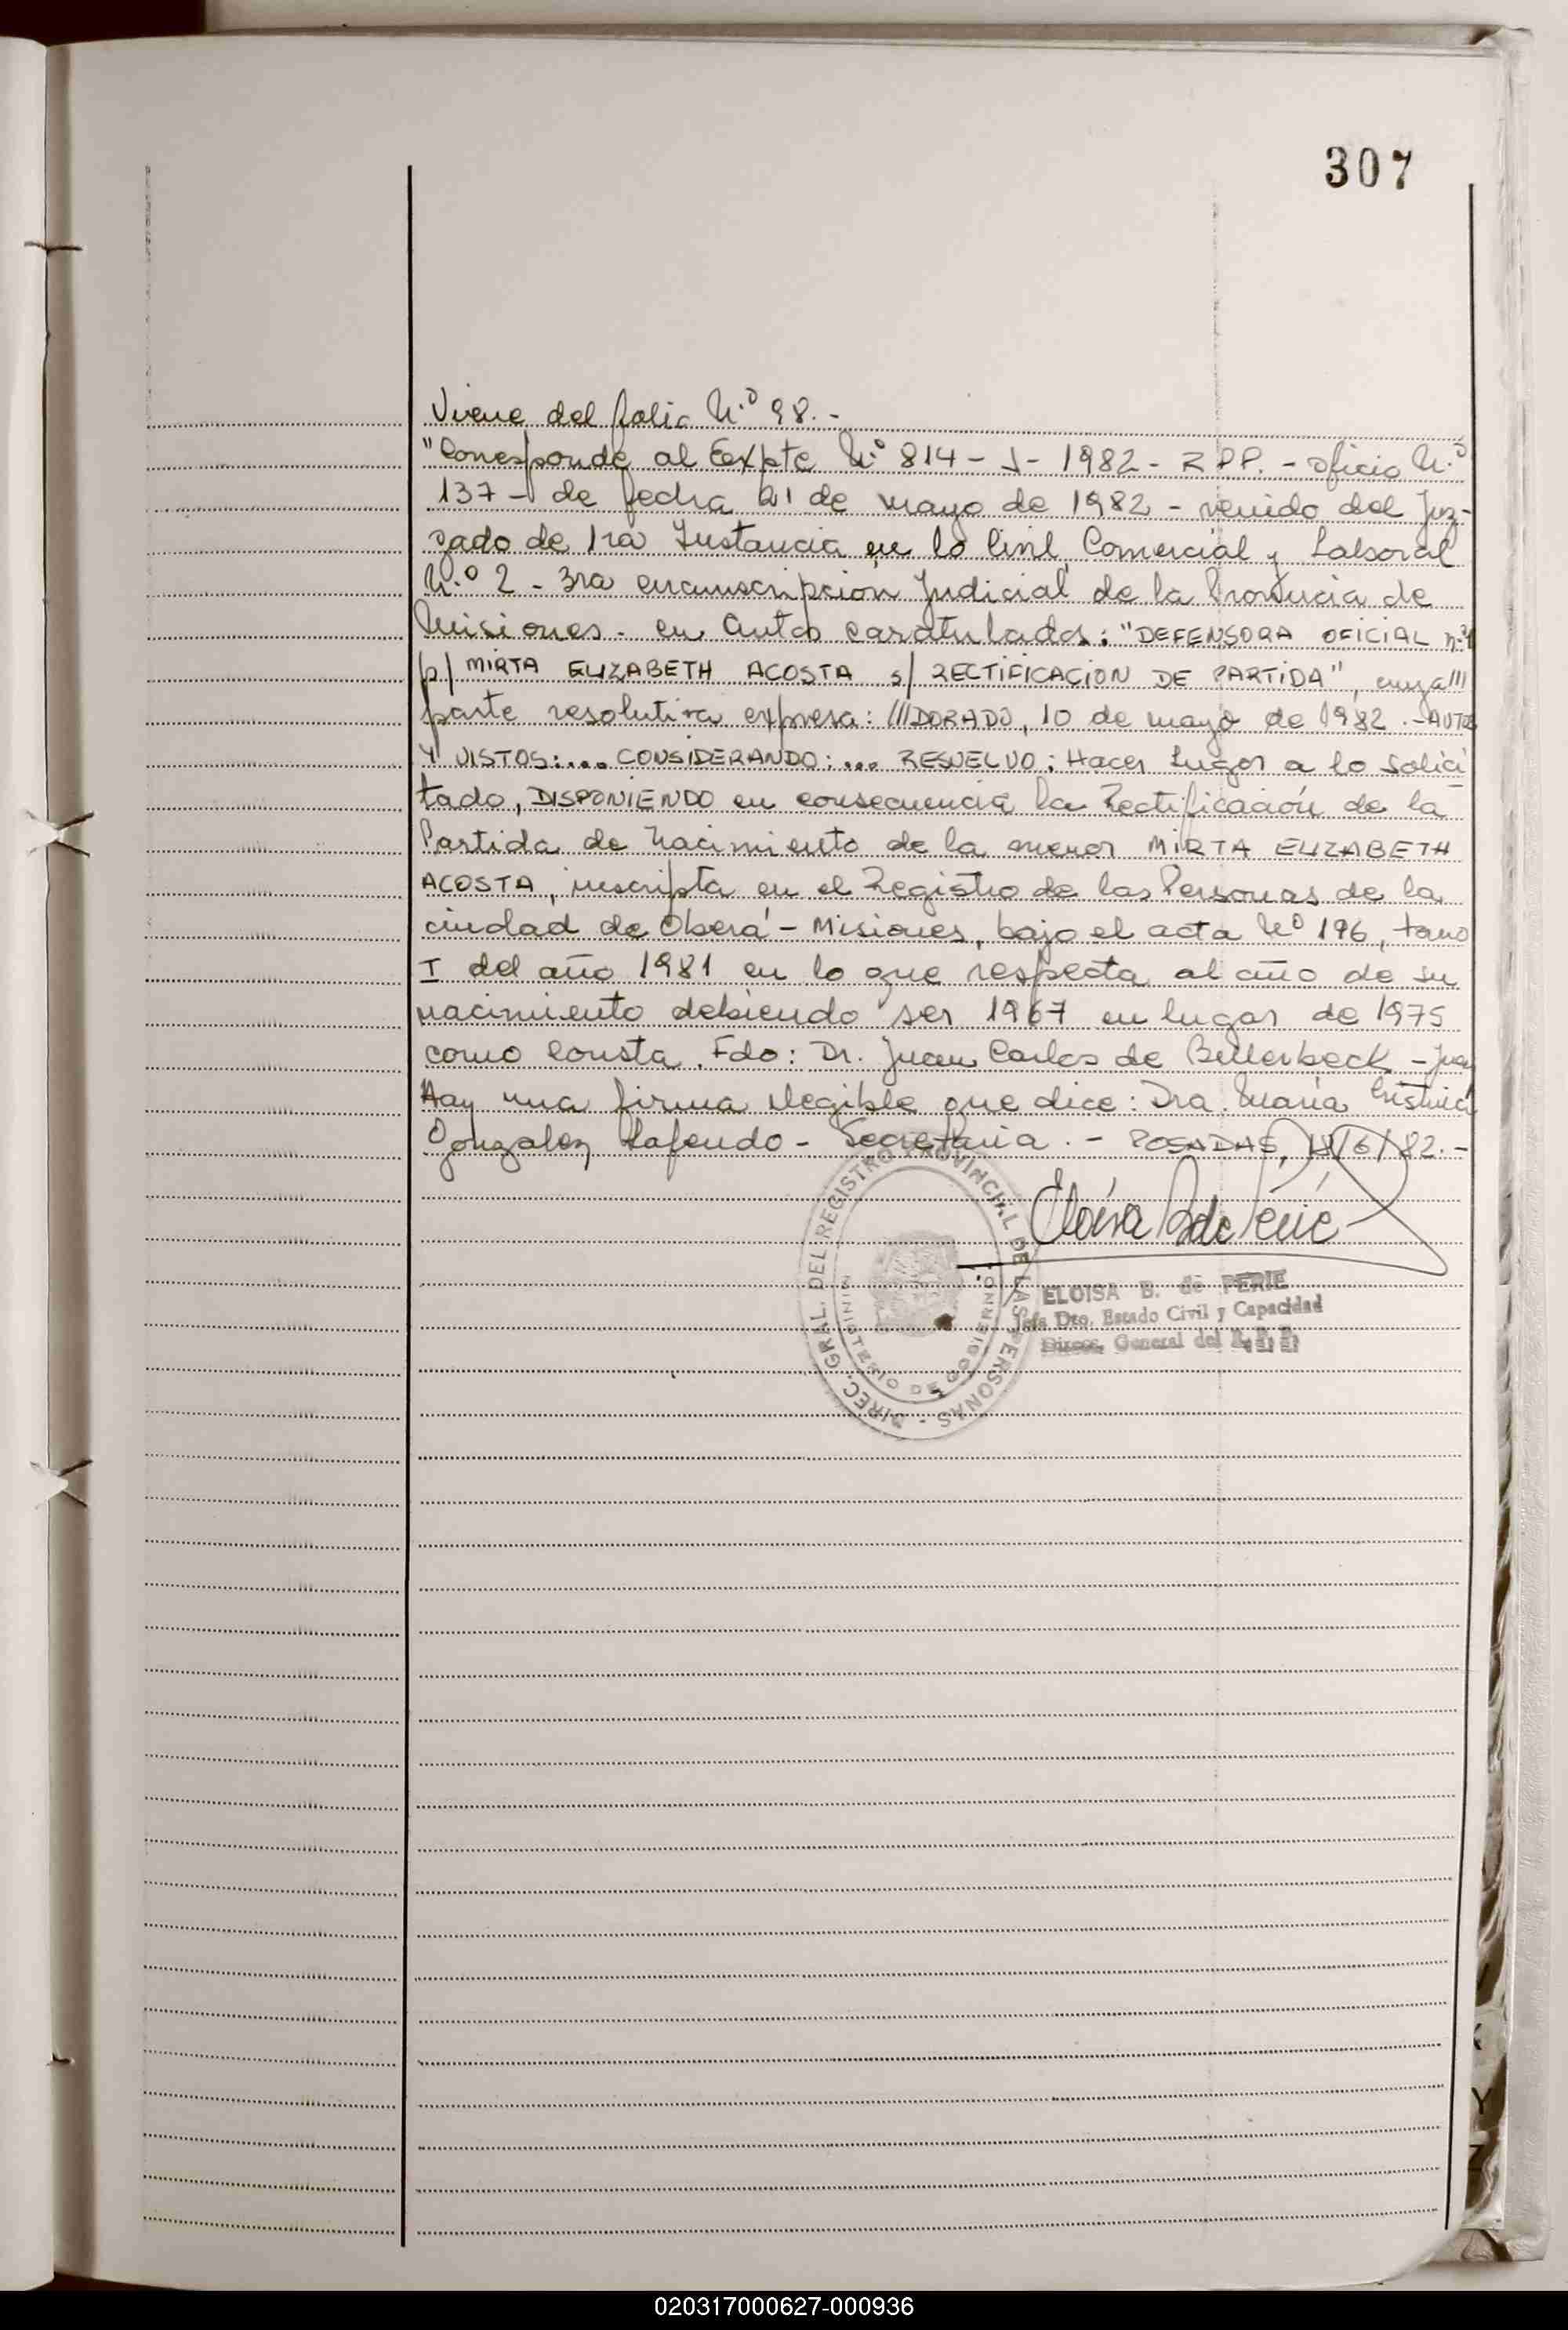 307
Viene del folio N.º 98.-
"Corresponde al Expte N.º 814-J-1982- R.P.P. - oficio N.º
137- de fecha 21 de mayo de 1982 - venido del Juz-
gado de 1ra Instancia en lo Civil, Comercial y Laboral
N.º 2 - 3ra circunscripción Judicial de la Provincia de
Misiones - en autos caratulados: "DEFENSORA OFICIAL nº1
p/ MIRTA ELIZABETH ACOSTA s/ RECTIFICACION DE PARTIDA", cuya///
parte resolutiva expresa: ///DORADO, 10 de mayo de 1982.-AUTOS
Y VISTOS:.... CONSIDERANDO:... RESUELVO: Hacer Lugar a lo solici
tado, DISPONIENDO en consecuencia la Rectificación de la
Partida de Nacimiento de la menor MIRTA ELIZABETH
ACOSTA, inscripta en el Registro de las Personas de la
ciudad de Oberá - Misiones, bajo el acta Nº 196, tomo
I del año 1981 en lo que respecta al año de su
nacimiento debiendo ser 1967 en lugar de 1975
como consta. Fdo: Dr. Juan Carlos de Bellerbeck - Juez
Hay una firma ilegible que dice: Dra. María Cristina
Gonzalez Lafendo - Secretaria.- POSADAS, 18/6/82.-
Eloisa B de Perié
ELOISA B. de PERIE
Jefa Dto. Estado Civil y Capacidad
Direcc. General del R.P.P.
DIREC. GRAL. DEL REGISTRO PROVINCIAL DE LAS PERSONAS -
MINISTERIO DE GOBIERNO
020317000627-000936